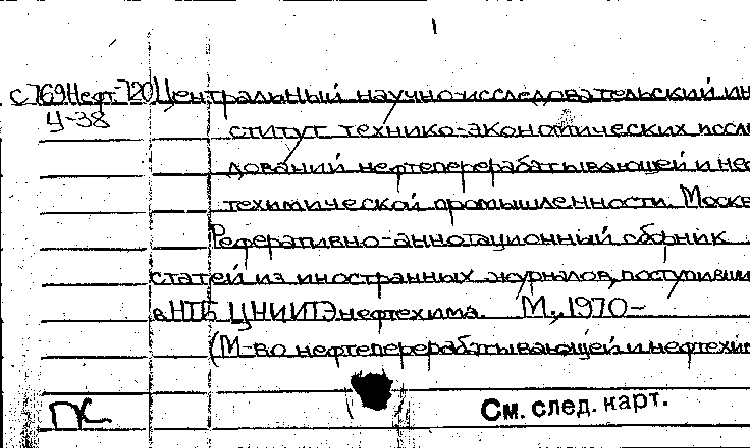 С769 Нефт.-720 Центральный научно-исследовательский ин
Ц-38 ститут технико-экономических иссле
дований нефтеперерабатывающей и неф
техимической промышленности. Москва
Реферативно-аннотационный сборник
статей из иностранных журналов, поступивши
в НТБ ЦНИИТЭнефтехима. М., 1970-
(М-во нефтеперерабатывающей и нефтехим
ПК См. след. карт.